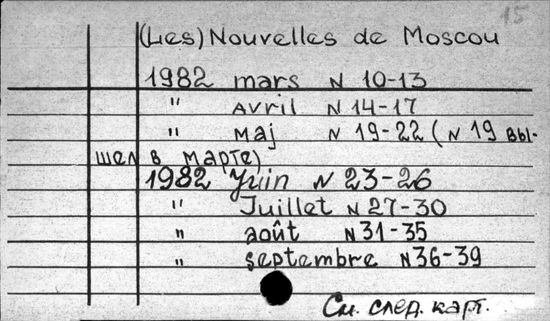 15
(Les) Nouvelles de Moscou
1982 mars N 10-13
" avril N 14-17
" maj N 19-22 (N 19 вы-
шел в марте)
1982 Juin N 23-26
" Juillet N 27-30
" août N 31-35
" septembre N 36-39
См. след. карт.